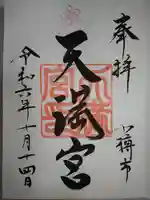 奉拝
小樽市
天満宮
令和六年十月十四日